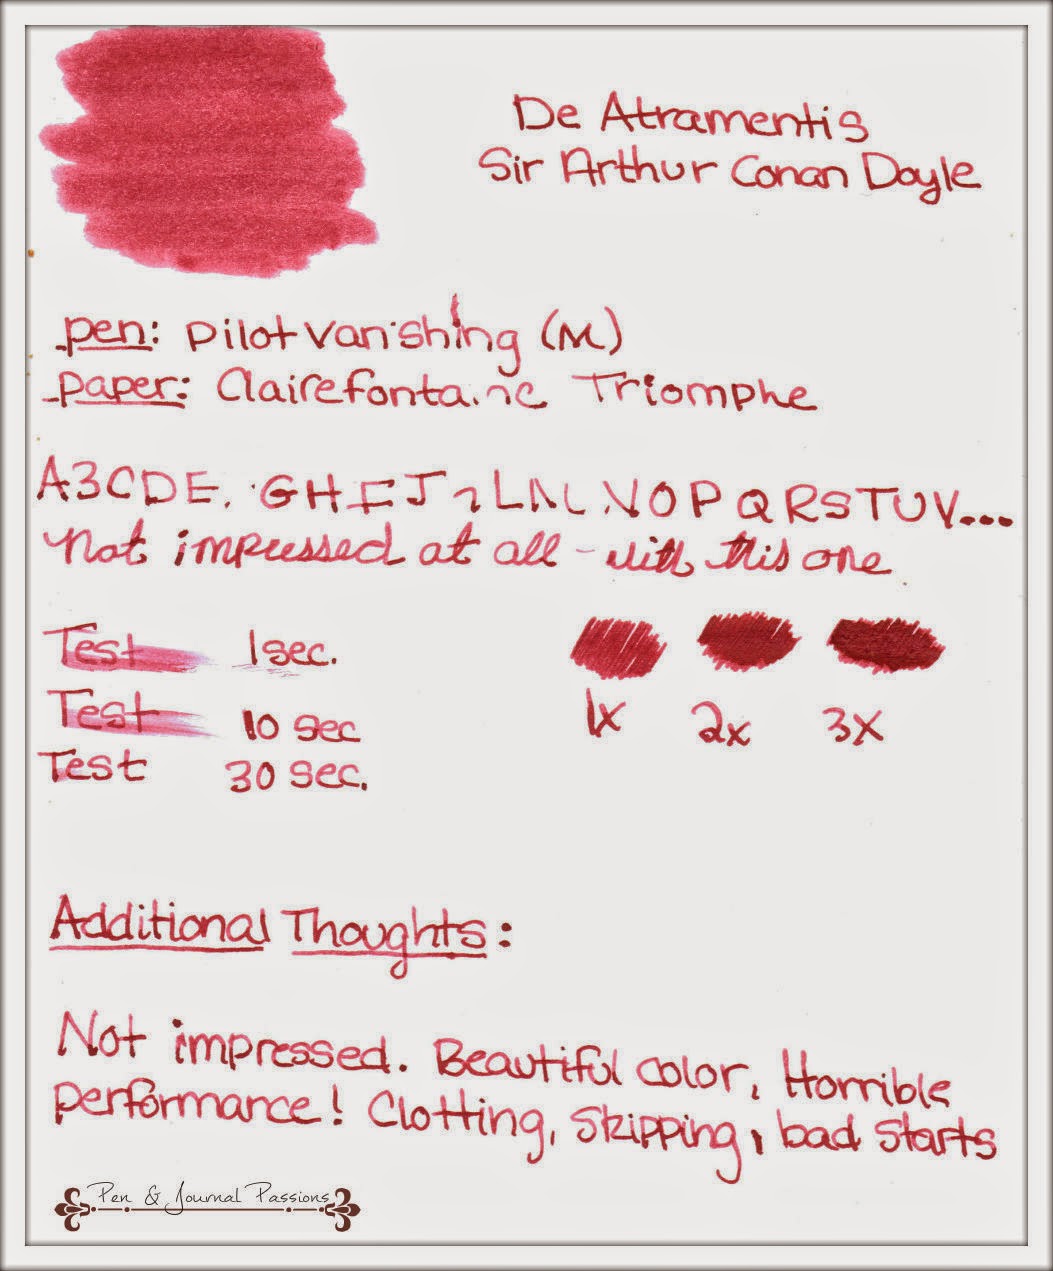 De Atramentis
Sir Arthur Conan Doyle
pen: Pilot Vanishing (M)
paper: Clairefontaine Triomphe
ABCDE. GHIJ LM NOPQRSTUV...
Not impressed at all - with this one
Test 1 sec.
Test 10 sec
Test 30 sec.
1x 2x 3x
Additional Thoughts:
Not impressed. Beautiful color, Horrible
performance! Clotting, skipping, bad starts
Pen & Journal Passions